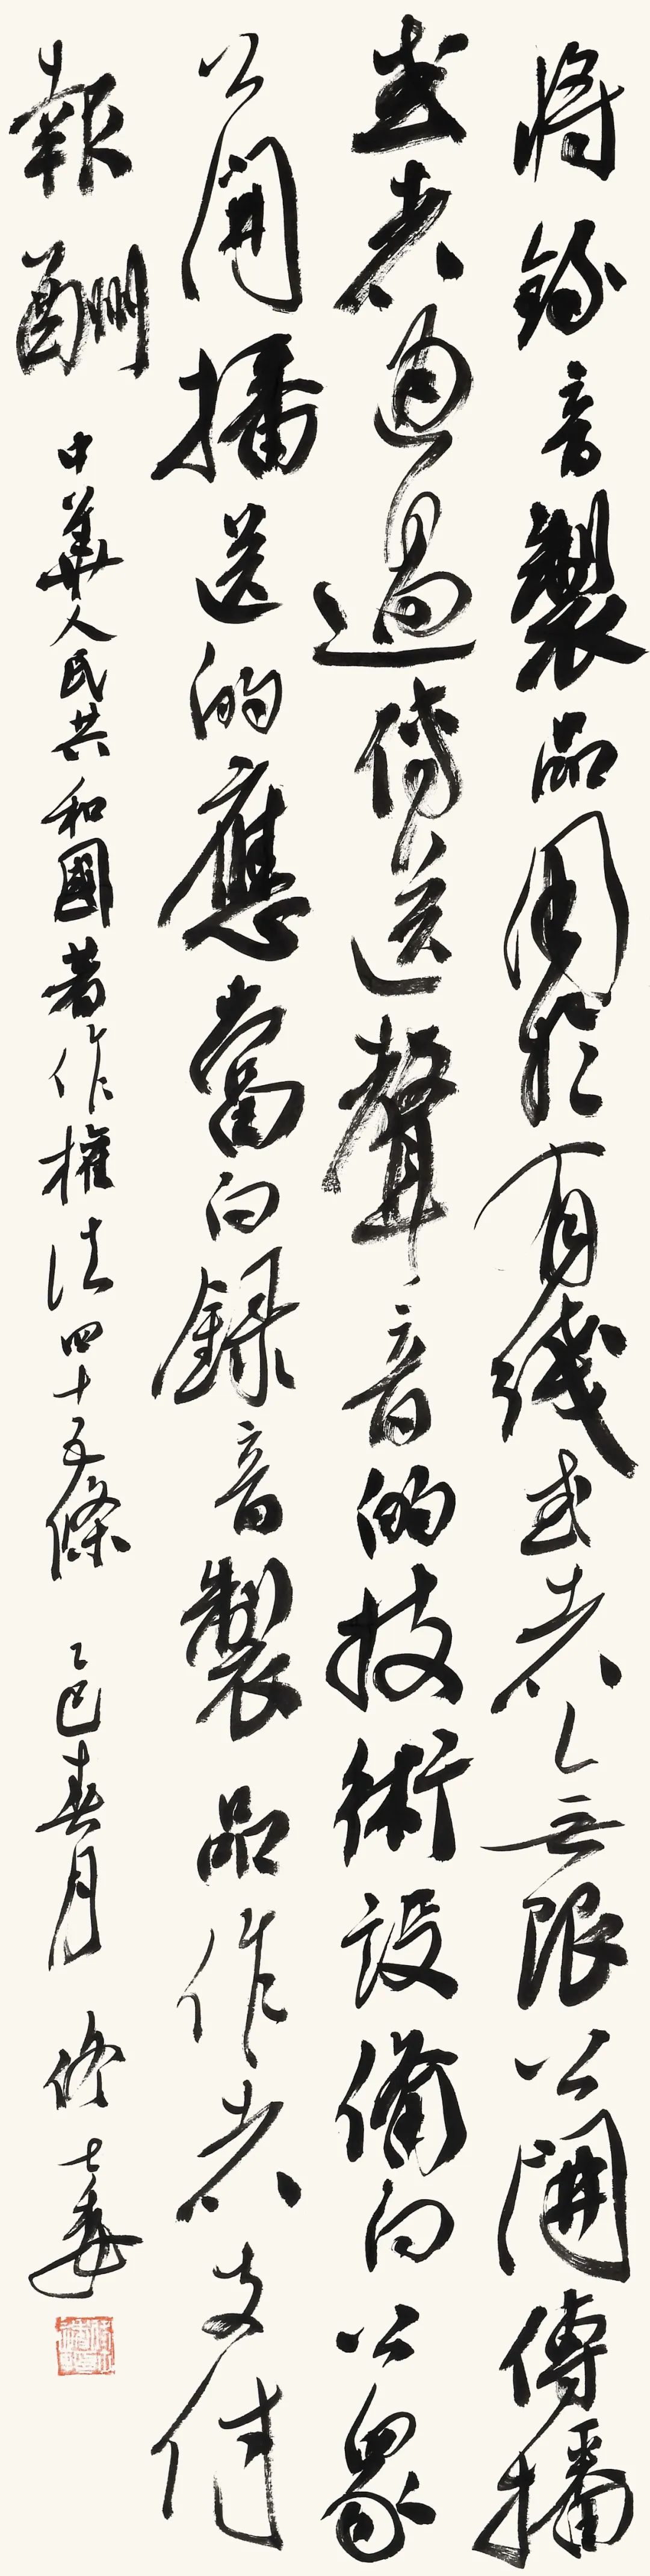 將錄音製品用於有綫或者無限公開傳播
或者通過傳送聲音的技術設備向公眾
公開播送的應當向錄音製品作者支付
報酬 中華人民共和國著作權法四十五條 乙巳春月